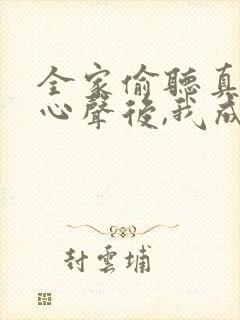 全家偷聽真
心聲後,我成
封雲埔